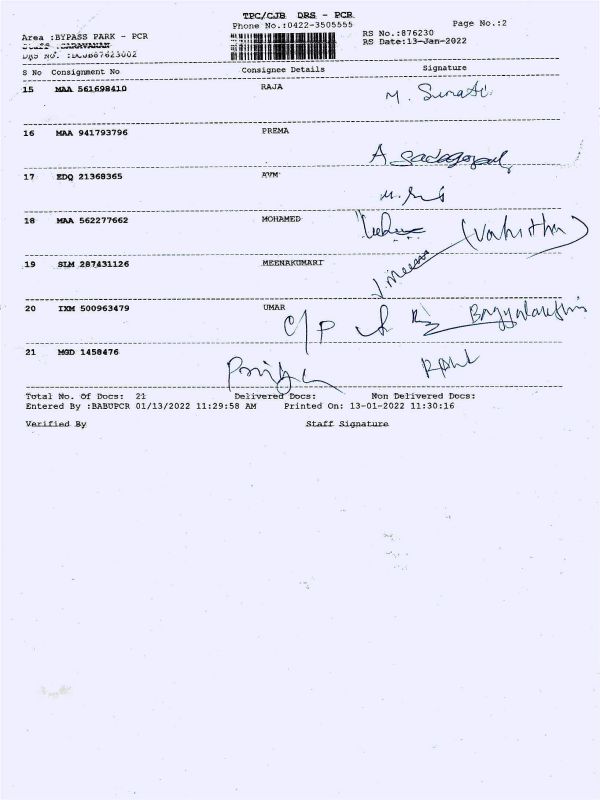 TPC/CJB DRS - PCR
Phone No.:0422-3505555
Page No.:2
Area :BYPASS PARK - PCR
RS No.:876230
RS Date:13-Jan-2022
SARAVANAN
S No Consignment No Consignee Details Signature
15 MAA 561698410 RAJA
M. Sumati
16 MAA 941793796 PREMA
A
17 EDQ 21368365 AVM
18 MAA 562277662 MOHAMED
(Vahitha)
19 SLM 287431126 MEENAKUMARI
J. Meena
20 IXM 500963479 UMAR
C/P
21 MGD 1458476
Total No. Of Docs: 21 Delivered Docs: Non Delivered Docs:
Entered By :BABUPCR 01/13/2022 11:29:58 AM Printed On: 13-01-2022 11:30:16
Verified By Staff Signature